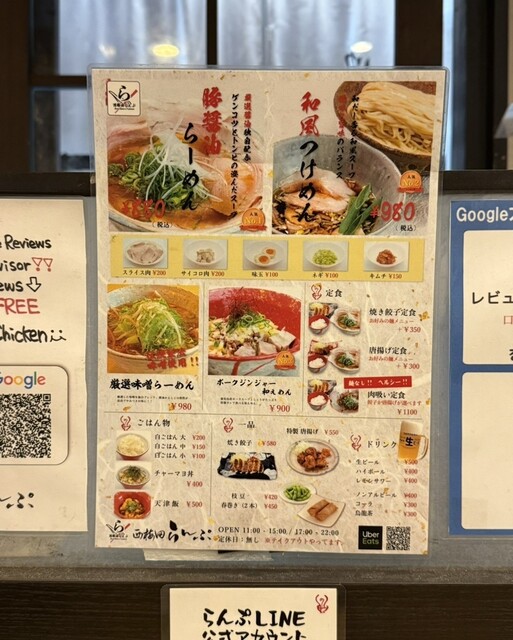 豚醤油
らーめん
厳選醤油独自配合
ゲンコツとトンビの澄んだスープ
¥850
(税込)
和風
つけめん
¥980
(税込)
スライス肉 ¥200
サイコロ肉 ¥200
味玉 ¥100
ネギ ¥100
キムチ ¥150
厳選味噌らーめん
¥980
ポークジンジャー
和えめん
¥900
定食
焼き餃子定食
お好みの麺メニュー
+ ¥350
唐揚げ定食
お好みの麺メニュー
+ ¥300
麺なし!! ヘルシー!!
肉吸い定食
餃子か唐揚げが選べます
¥1100
ごはん物
白ごはん 大 ¥200
白ごはん 中 ¥150
白ごはん 小 ¥100
チャーマヨ丼
¥400
天津飯 ¥500
一品
焼き餃子 ¥580
特製 唐揚げ ¥550
枝豆 ¥420
春巻き (2本) ¥450
ドリンク
生
生ビール ¥500
ハイボール ¥400
レモンサワー ¥400
ノンアルビール
コーラ ¥300
烏龍茶 ¥300
西梅田 らんぷ
OPEN 11:00 - 15:00 / 17:00 - 22:00
定休日:無し ※テイクアウトやってます。
Uber
Eats
Reviews
visor
ews
FREE
Chicken
Google
んぷ
Google
レビュ
らんぷLINE
公式アカウント